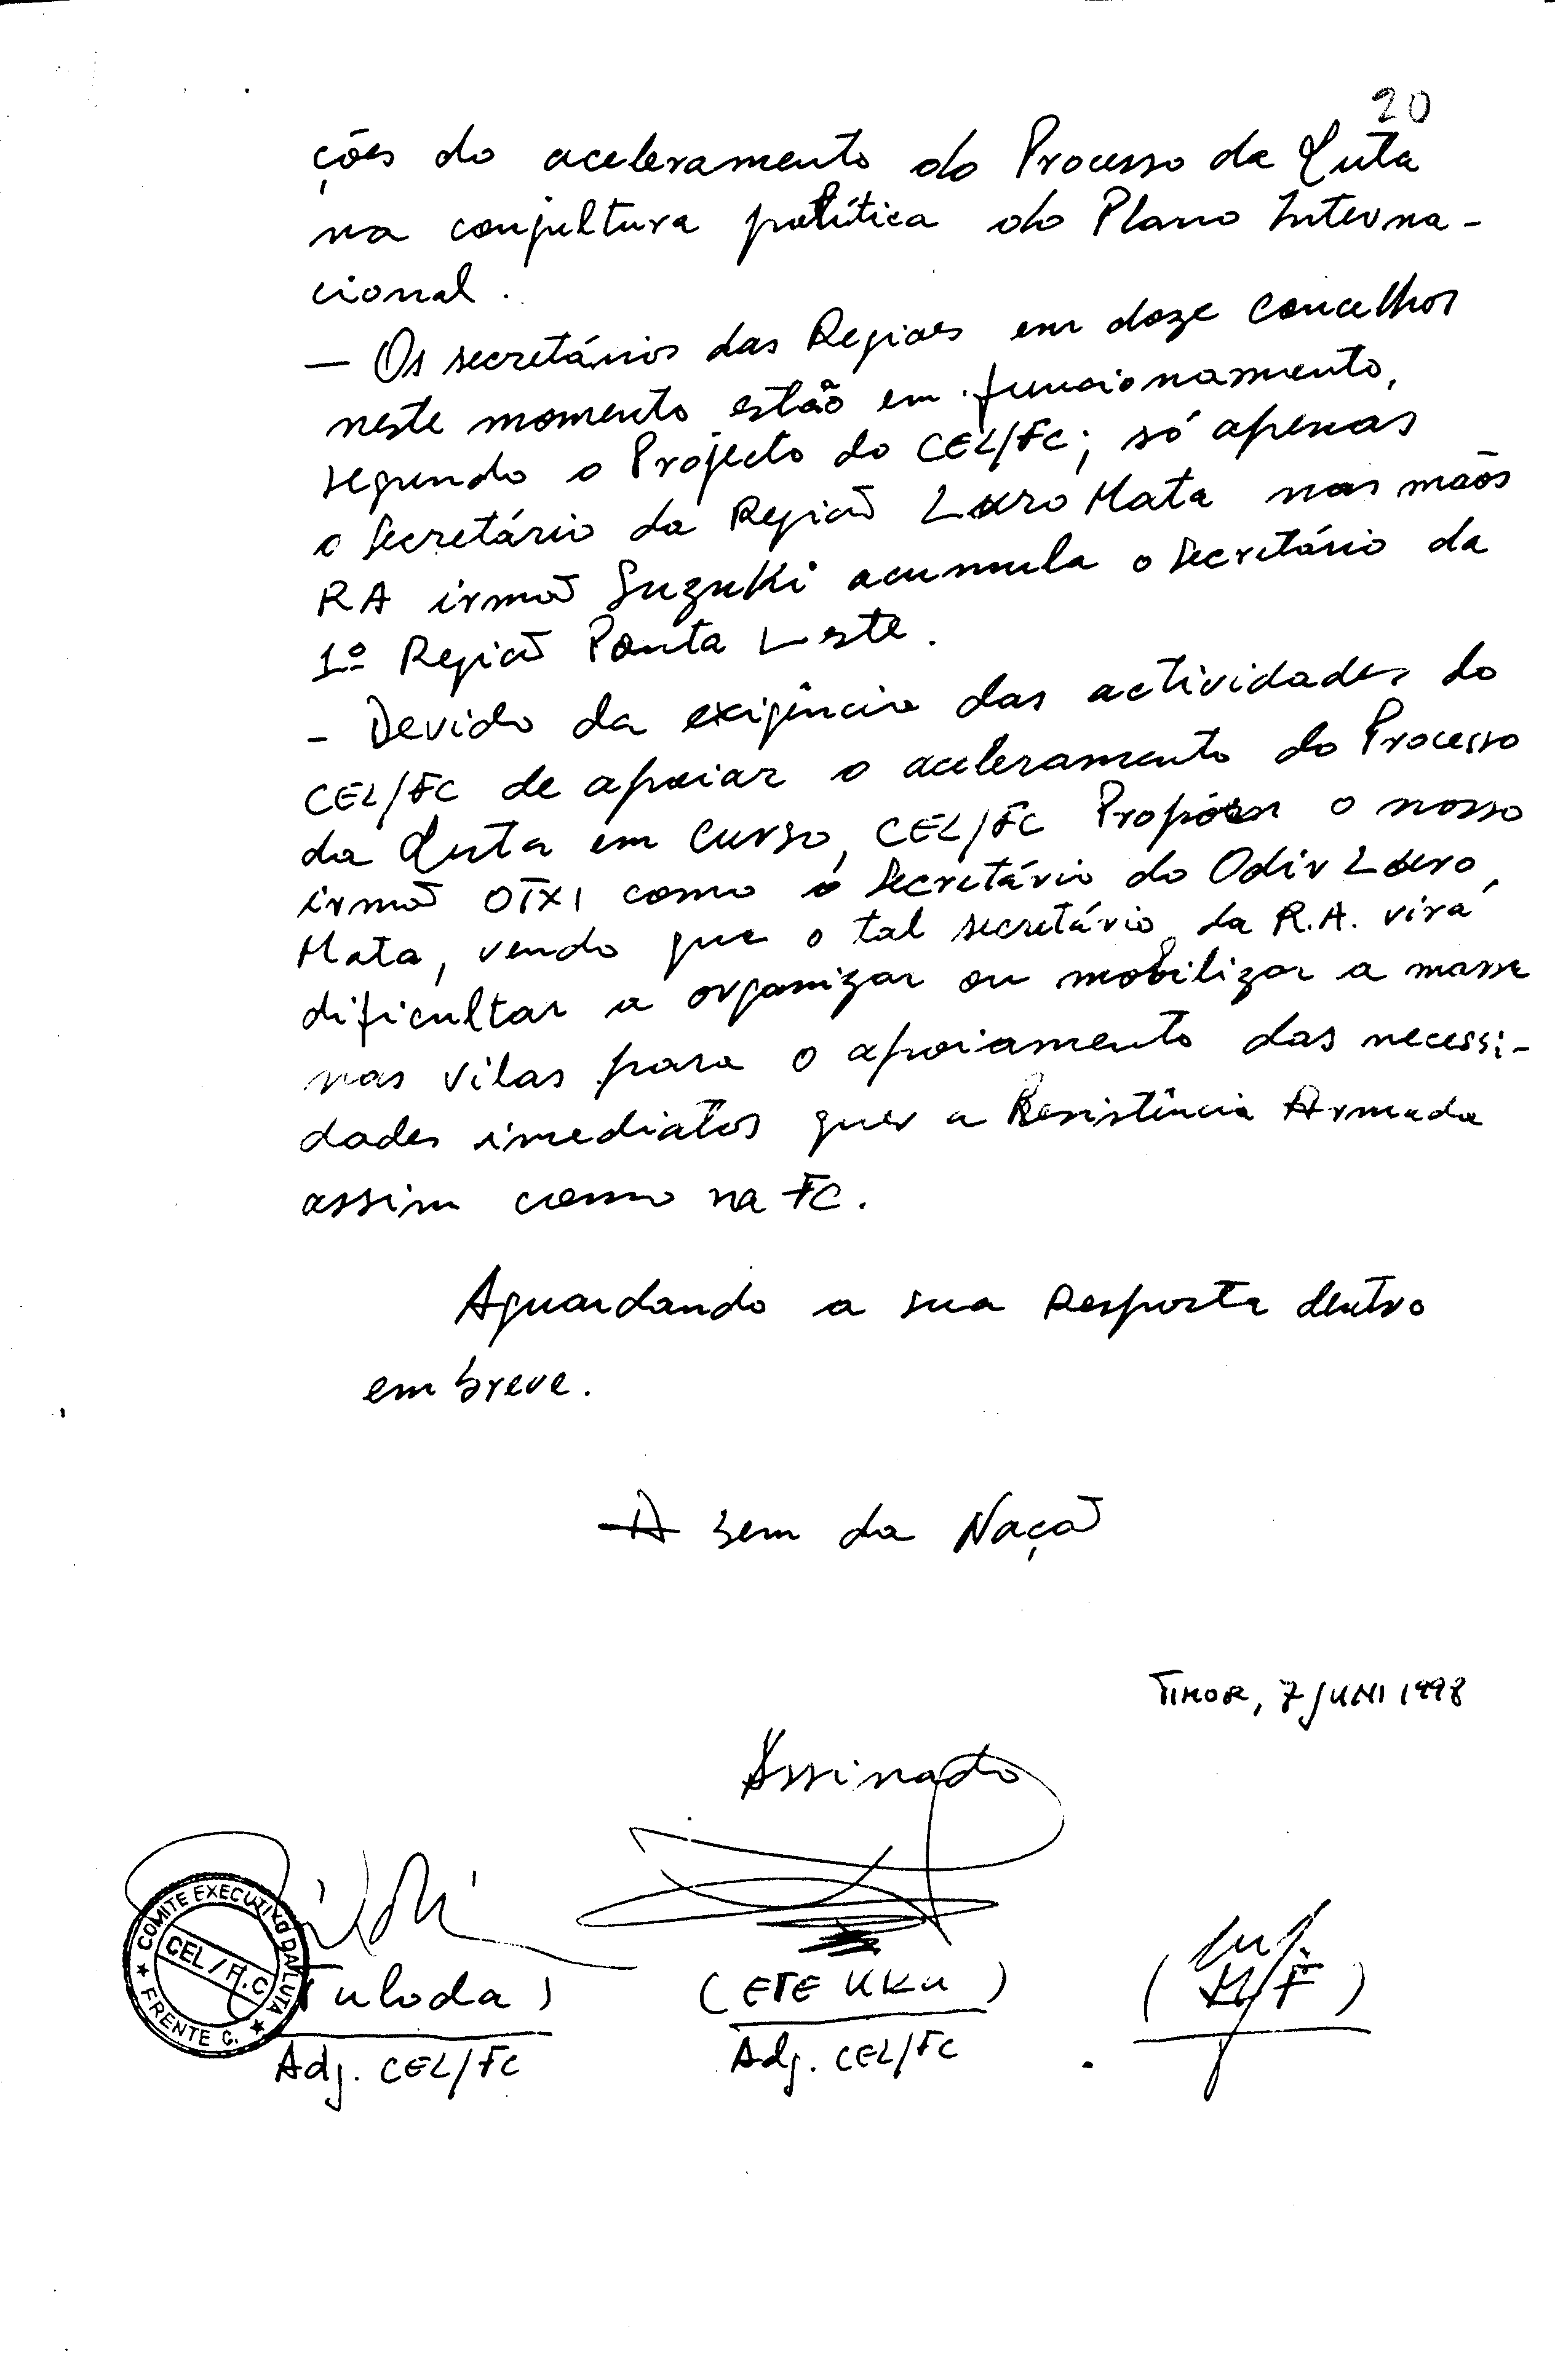 20
ções do aceleramento do Processo da Luta
na conjultura política do Plano Interna-
cional.
— Os secretários das Regioes em doze concelhos
neste momento estão em funcionamento,
segundo o Projecto do CEL/FC; só apenas
o Secretário da Região Loro Mata nas mãos
RA irmão Suzuki acumula o Secretário da
1º Região Ponta Leste.
- Devido da exigência das actividades do
CEL/FC de apoiar o aceleramento do Processo
da Luta em curso, CEL/FC Propõem o nosso
irmão OTXI como o Secretário do Odir Loro
Mata, vendo que o tal secretário da R.A. virá
dificultar a organizar ou mobilizar a massa
nas vilas para o apoiamento das necessi-
dades imediatos quer a Resistência Armada
assim como na FC.
Aguardando a sua Resposta dentro
em breve.
A bem da Nação
TIMOR, 7 JUNI 1998
Assinado
COMITE EXECUTIVO DA LUTA
CEL/F.C
FRENTE C.
Tuloda)
(ETE UKU)
Adj. CEL/FC
Adj. CEL/FC